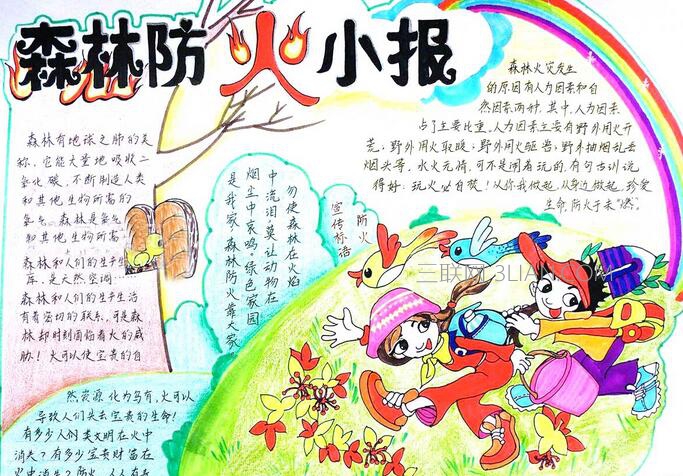 森林防火小报
森林有地球之肺的美
称，它能大量地吸收二
氧化碳，不断制造人类
和其他生物所需的
氧气。森林是氧气
和其他生物所需的
森林和人们的生产生活
库，是天然空调
森林和人们的生产生活
有着密切的联系，可是森
林却时刻面临着火的威
胁！火可以使宝贵的自
然资源化为乌有，火可以
导致人们失去宝贵的生命！
有多少人例类文明在火中
消失？有多少宝贵财富在
火中消失？防火，人人有责
防火
宣传标语
勿使森林在火焰
中流泪，莫让动物在
烟尘中哀鸣。绿色家园
是我家，森林防火靠大家
森林火灾发生
的原因有人为因素和自
然因素两种，其中，人为因素
占了主要比重，人为因素主要有野外用火开
荒；野外用火取暖；野外用火驱兽；野外抽烟乱丢
烟头等。水火无情，可不是闹着玩的，有句古训说
得好：玩火必自焚！从你我做起，从身边做起，珍爱
生命，防火于未"燃"。
三联网 3LIAN.COM